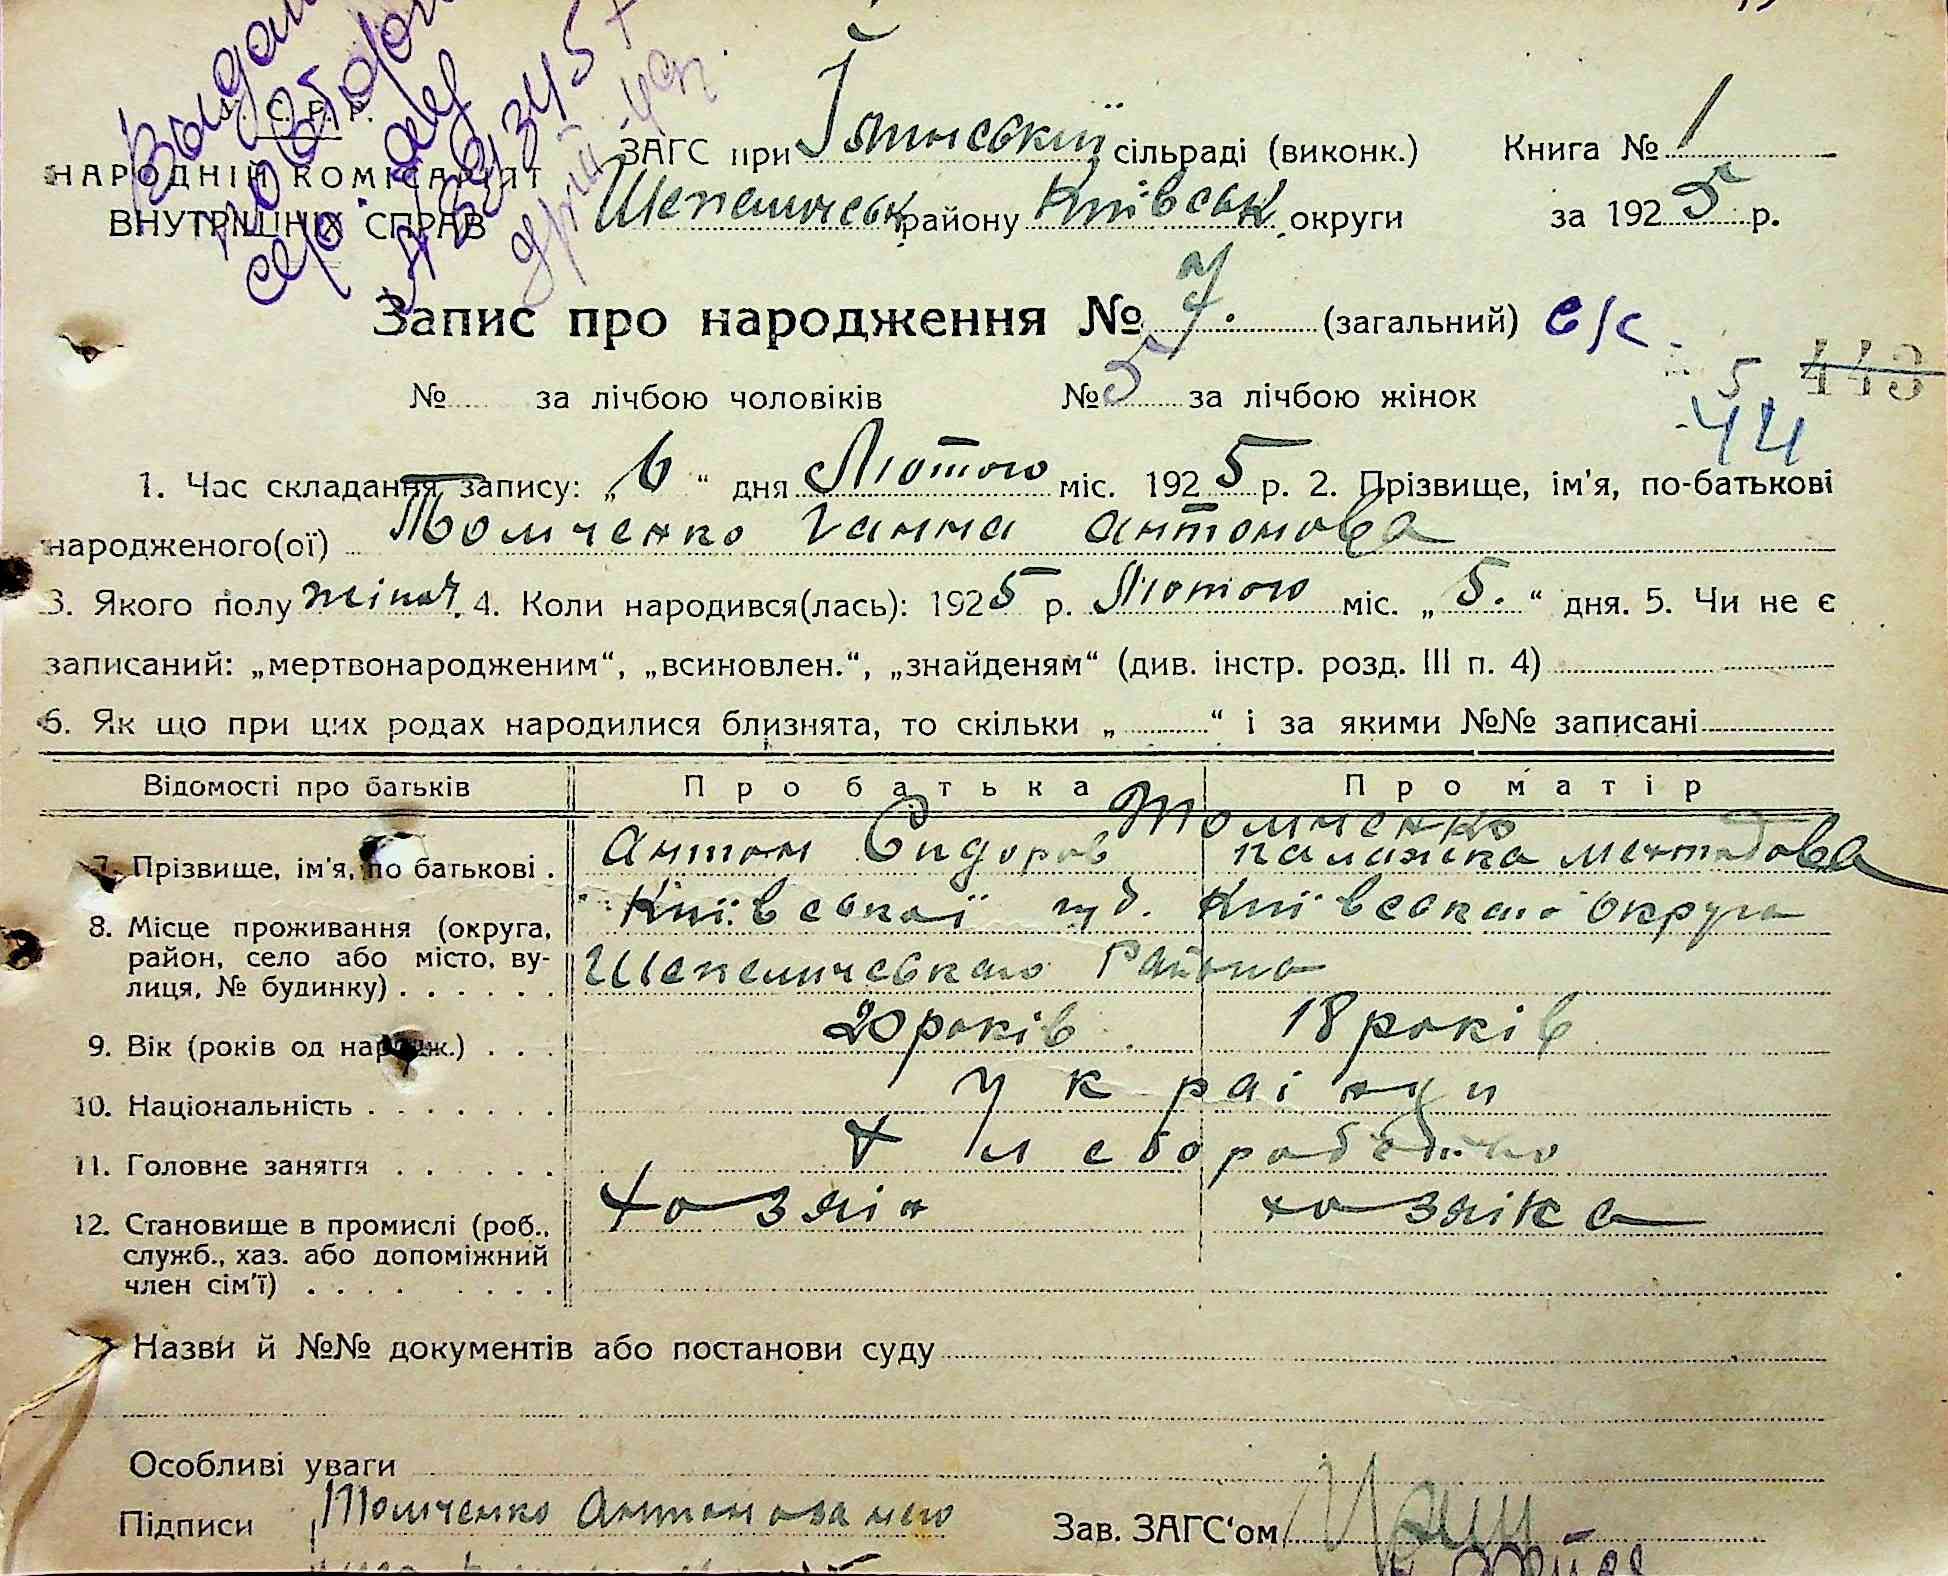 У. С. Р. Р.
НАРОДНІЙ КОМІСАРІЯТ
ВНУТРІШНІХ СПРАВ
ЗАГС при сільраді (виконк.) Книга № 1
Шепелическ району Київськ округи за 1925 р.
Запис про народження № 7. (загальний) в/с
№ за лічбою чоловіків № 5 за лічбою жінок
5 443
44
1. Час складання запису: „6“ дня Лютого міс. 1925 р. 2. Прізвище, ім'я, по-батькові
народженого(ої) Томченко Ганна Антонова
3. Якого полу жіноч. 4. Коли народився(лась): 1925 р. Лютого міс. „5.“ дня. 5. Чи не є
записаний: „мертвонародженим“, „всиновлен.“, „знайденям“ (див. інстр. розд. III п. 4)
6. Як що при цих родах народилися близнята, то скільки „ “ і за якими №№ записані
Відомості про батьків Про батька Про матір
Томченко
7. Прізвище, ім'я, по батькові . Антон Сидоров палажка
8. Місце проживання (округа, Київської губ. Київського округа
район, село або місто, ву- Шепелическаго Района
лиця, № будинку)
9. Вік (років од народж.) 20 років 18 років
10. Національність Україн
11. Головне заняття Хлебороб
12. Становище в промислі (роб., хозяін хозяіка
служб., хаз. або допоміжний
член сім'ї)
Назви й №№ документів або постанови суду
Особливі уваги
Підписи Томченко Антон Зав. ЗАГС'ом